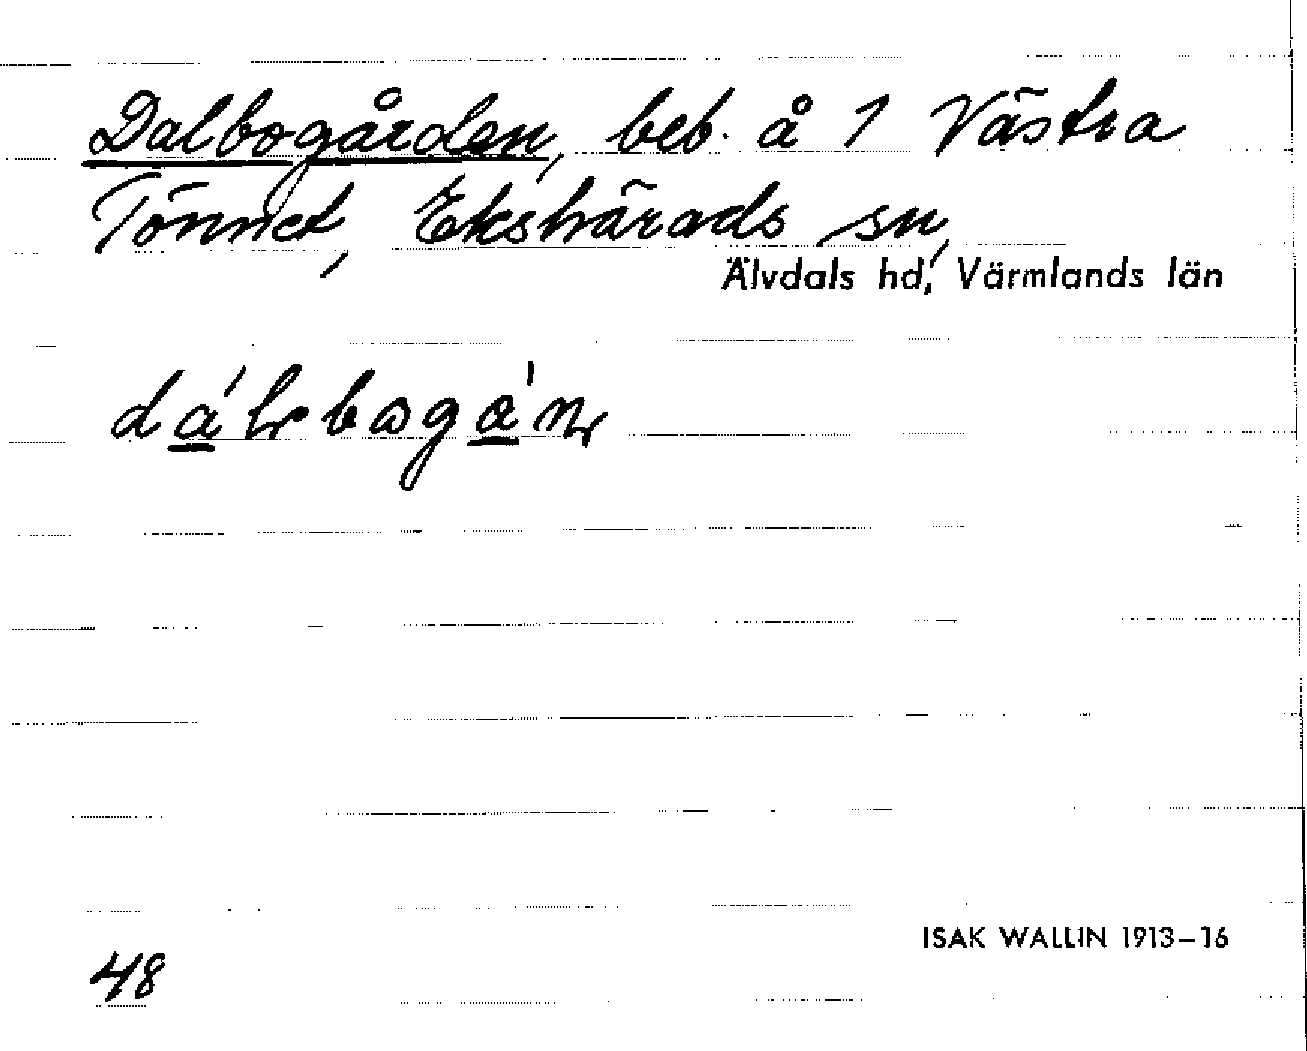 Dalbogården, beb. å 1 Västra
Tönnet, Ekshärads sn,
Älvdals hd, Värmlands län
48
ISAK WALLIN 1913–16